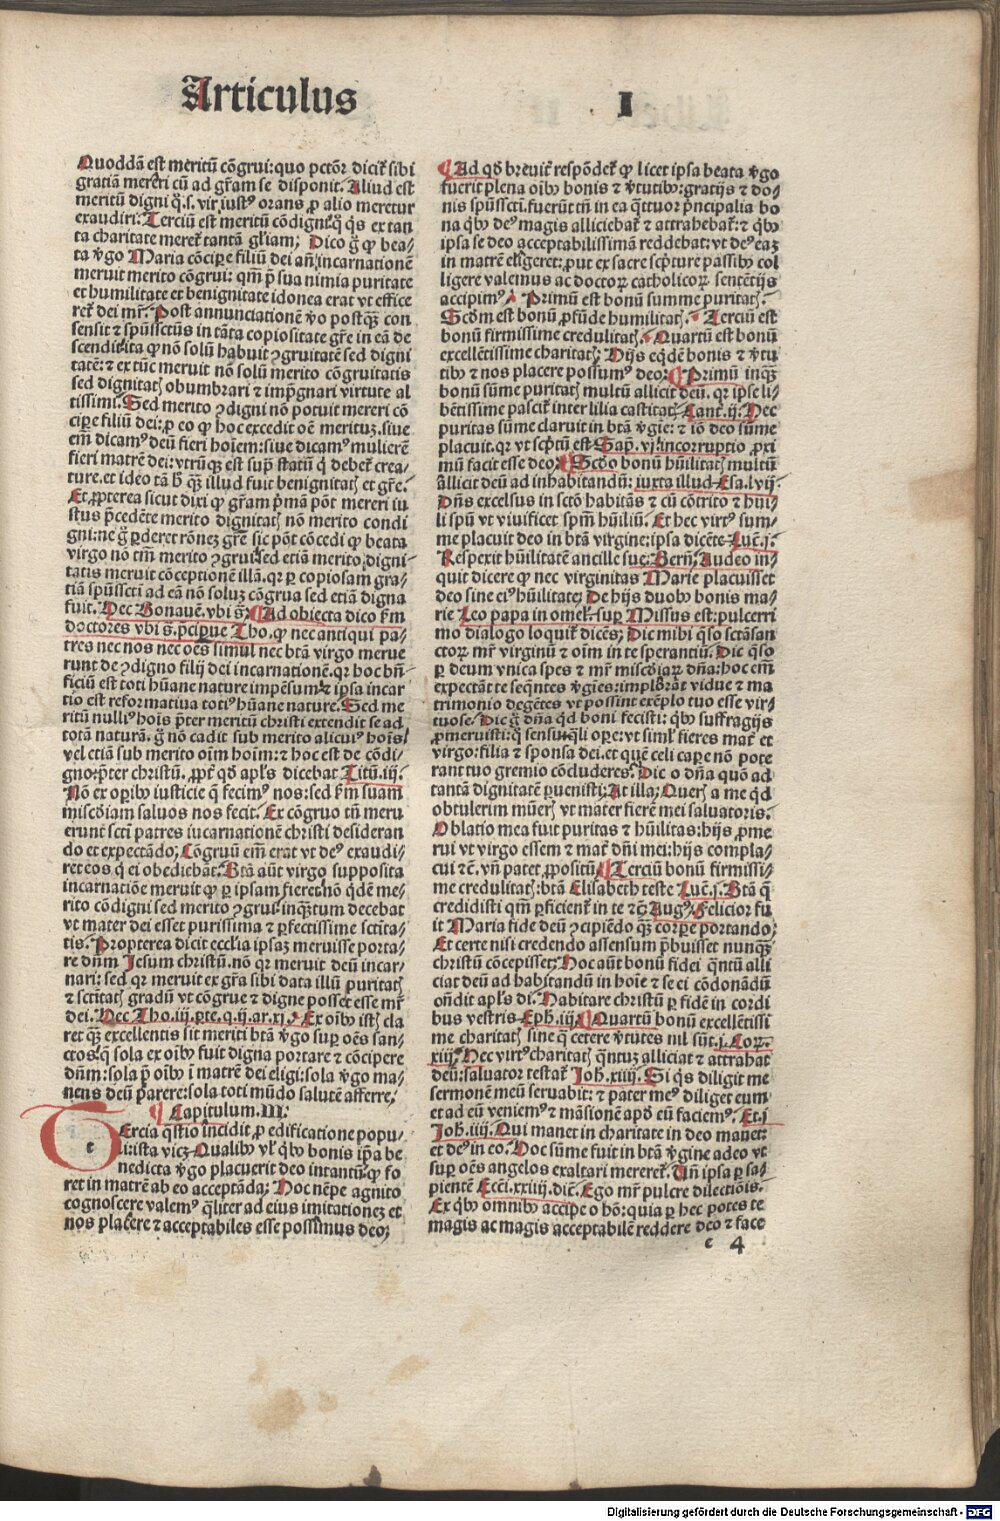 Articulus I
Quoddã est meritũ cõgrui: quo pctõr dicit̃ sibi
gratiã mereri cũ ad gr̃am se disponit. Aliud est
meritũ digni q̃.s. vir iustꝰ orans ꝓ alio meretur
exaudiri. Terciũ est meritũ cõdigni q̃ q̃s ex tan
ta charitate meret̃ tantã gl̃iam; Dico g̃ ꝙ bea-
ta ṽgo Maria cõcipe filiũ dei an̄ incarnationẽ
meruit merito cõgrui: qm̃ p̃ sua nimia puritate
et humilitate et benignitate idonea erat vt effice
ret̃ dei mr̃. Post annunciationẽ ṽo postq̃ con
sensit & sp̃ussctũs in tãta copiositate gr̃e in eã de
scendit: ita ꝙ nõ solũ habuit ꝯgruitatẽ sed digni
tatẽ: & ex tũc meruit nõ solũ merito cõgruitatis
sed dignitatꝭ obumbrari & imp̃gnari virtute al
tissimi. Sed merito ꝯdigni nõ potuit mereri cõ
cipe filiũ dei: ꝓ eo ꝙ hoc excedit oẽ meritũ. siue
em̃ dicamꝰ deũ fieri hoĩem: siue dicamꝰ mulierẽ
fieri matrẽ dei: vtrũq̃ est sup̃ statũ q̃ debet̃ crea-
ture. et ideo tã h̃ q̃ illud fuit benignitatꝭ et gr̃e.
Et ꝓpterea sicut dixi ꝙ gr̃am p̃mã põt mereri iu
stus p̃cedẽte merito dignitatꝭ nõ merito condi
gni: ne g̃ ꝑderet rõnez gr̃e sic põt cõcedi ꝙ beata
virgo nõ tm̃ merito ꝯgrui sed etiã merito digni-
tatis meruit cõceptionẽ illã. qꝛ ꝑ copiosam gra-
tiã sp̃ussctĩ ad eã nõ soluz cõgrua sed etiã digna
fuit. Hec Bonauẽ. vbi s̃. Ad obiecta dico km̃
doctores vbi s̃. p̃cipue Tho. ꝙ nec antiqui pa-
tres nec nos nec oẽs simul nec btã virgo merue
runt de ꝯdigno filij dei incarnationẽ. qꝛ hoc bñ-
ficiũ est toti hũane nature impẽsum: & ipsa incar
tio est reformatiua totiꝰ hũane nature. Sed me
ritũ nulliꝰ hoĩs p̃ter meritũ christi extendit se ad
totã naturã. g̃ nõ cadit sub merito alicuiꝰ hoĩs
vel etiã sub merito oĩm hoĩm: & hoc est de cõdi-
gno: p̃ter christũ. ꝓpt̃ qd̃ apl̃s dicebat Titũ. iij.
Nõ ex oꝑibꝰ iusticie q̃ fecimꝰ nos: sed km̃ suam
misc̃diam saluos nos fecit. Ex cõgruo tñ meru
erunt sctĩ patres incarnationẽ christi desideran
do et expectãdo; Cõgruũ em̃ erat vt deꝰ exaudi-
ret eos q̃ ei obediebãt. Btã aũt virgo supposita
incarnatiõe meruit ꝙ ꝑ ipsam fieret. nõ q̃dẽ me-
rito cõdigni sed merito ꝯgrui. inq̃tum decebat
vt mater dei esset purissima & ꝑfectissime sctita-
tis. Propterea dicit eccl̃ia ipsaz meruisse porta-
re dñm Jesum christũ. nõ qꝛ meruit deũ incar-
nari: sed qꝛ meruit ex gr̃a sibi data illũ puritatꝭ
& sctitatꝭ gradũ vt cõgrue & digne posset esse mr̃
dei. Hec Tho. iij. pte. q. ij. ar. xj. Ex oĩbꝰ istꝭ cla
ret q̃ excellentis sit meriti btã ṽgo sup̃ oẽs san-
ctos. q̃ sola ex oĩbꝰ fuit digna portare & cõcipere
dñm: sola p̃ oĩbꝰ ĩ matrẽ dei eligi: sola ṽgo ma-
nens deũ p̃arere: sola toti mũdo salutẽ afferre.
Capitulum. III.
Tercia q̃stio incidit ꝓ edificatione popu-
li: ista vicz. Qualibꝰ vl̃ q̃bꝰ bonis ip̃a be
nedicta ṽgo placuerit deo intantũ ꝙ fo
ret in matrẽ ab eo acceptãda; Hoc nẽpe agnito
cognoscere valemꝰ q̃liter ad eius imitationez et
nos placere & acceptabiles esse possimus deo;
Ad qd̃ breuit̃ respõdet̃ ꝙ licet ipsa beata ṽgo
fuerit plena oĩbꝰ bonis & ṽtutibꝰ: gratijs & do-
nis sp̃ussctĩ. fuerũt tñ in ea q̃ttuor p̃ncipalia bo
na q̃bꝰ deꝰ magis alliciebat̃ & attrahebat̃: & q̃bꝰ
ipsa se deo acceptabilissimã reddebat: vt deꝰ eaz
in matrẽ eligeret: ꝓut ex sacre scp̃ture passibꝰ col
ligere valemus ac doctoꝝ catholicoꝝ sentẽtijs
accipimꝰ. Primũ est bonũ summe puritatꝭ.
Scdm est bonũ ꝓfũde humilitatꝭ. Terciũ est
bonũ firmissime credulitatꝭ. Quartũ est bonũ
excellẽtissime charitatꝭ; Hijs eq̃dẽ bonis & ṽtu
tibꝰ & nos placere possumꝰ deo; Primũ inq̃
bonũ sũme puritatꝭ multũ allicit deũ. qꝛ ipse li-
bẽtissime pascit̃ inter lilia castitatꝭ. Cant̃. ij. Hec
puritas sũme claruit in btã ṽgie: & iõ deo sũme
placuit. qꝛ vt scp̃tũ est Sap. vj. incorruptio ꝓxi
mũ facit esse deo; Scdo bonũ hũilitatꝭ multũ
allicit deũ ad inhabitandũ: iuxta illud Esa. lvij.
Dñs excelsus in sctõ habitãs & cũ cõtrito & hũi-
li sp̃u vt viuificet sp̃m hũiliũ. Et hec virtꝰ sum-
me placuit deo in btã virgine: ipsa dicẽte Luc̃. j.
Respexit hũilitatẽ ancille sue; Bern̄. Audeo in-
quit dicere ꝙ nec virginitas Marie placuisset
deo sine eiꝰ hũilitate; De hijs duobꝰ bonis ma-
rie Leo papa in omel̃. sup Missus est: pulcerri
mo dialogo loquit̃ dicẽs; Dic mihi q̃so sctãsan
ctoꝝ mr̃ virginũ & oĩm in te sperantiũ. Dic q̃so
ꝑ deum vnica spes & mr̃ misc̃diaꝝ dña: hoc em̃
expectãt te seq̃ntes ṽgĩes: implõrãt vidue & ma
trimonio degẽtes vt possint exẽplo tuo esse vir-
tuose. Dic g̃ dña qd boni fecisti: q̃bꝰ suffragijs
ꝓmeruisti: q̃ sensu: q̃li oꝑe: vt siml̃ fieres mat̃ et
virgo: filia & sponsa dei. et quẽ celi capere nõ pote
rant tuo gremio cõcluderes. Dic o dña quõ ad
tantã dignitatẽ ꝑuenisti; At illa; Querꝭ a me qd
obtulerim mũerꝭ vt mater fierẽ mei saluatoris.
Oblatio mea fuit puritas & hũilitas: hijs ꝓme
rui vt virgo essem & mat̃ dñi mei: hijs compla-
cui &c̃. vñ patet ꝓpositũ; Terciũ bonũ firmissi-
me credulitatꝭ: btã Elisabeth teste Luc̃. j. Btã q̃
credidisti qm̃ ꝑficient̃ in te &c̃ Augꝰ. Felicior fu
it Maria fide deũ ꝯcipiẽdo q̃ corꝑe portando;
Et certe nisi credendo assensum p̃buisset nunq̃
christũ cõcepisset; Hoc aũt bonũ fidei q̃ntũ alli
ciat deũ ad habitandũ in hoĩe & se ei cõdonãdũ
oñdit apl̃s dĩ. Habitare christũ ꝑ fidẽ in cordi
bus vestris Eph. iij. Quartũ bonũ excellẽtissi
me charitatꝭ sine q̃ cetere ṽtutes nil sũt. j. Coꝝ.
xiij. Hec virtꝰ charitatꝭ q̃ntuz alliciat & attrahat
deũ: saluator testat̃ Joh. xiiij. Si q̃s diligit me
sermonẽ meũ seruabit: & pater meꝰ diliget eum
et ad eũ veniemꝰ & mãsionẽ apd̃ eũ faciemꝰ. Et. j
Joh. iiij. Qui manet in charitate in deo manet:
et deꝰ in eo. Hoc sũme fuit in btã ṽgine adeo vt
sup̃ oẽs angelos exaltari mereret̃. Vñ ipsa ꝑ sa-
pientẽ Eccĩ. xxiiij. dic̃. Ego mr̃ pulcre dilectiõis.
Ex q̃bꝰ omnibꝰ accipe o hõ: quia ꝑ hec potes te
magis ac magis acceptabilẽ reddere deo & face
c 4
Digitalisierung gefördert durch die Deutsche Forschungsgemeinschaft - DFG